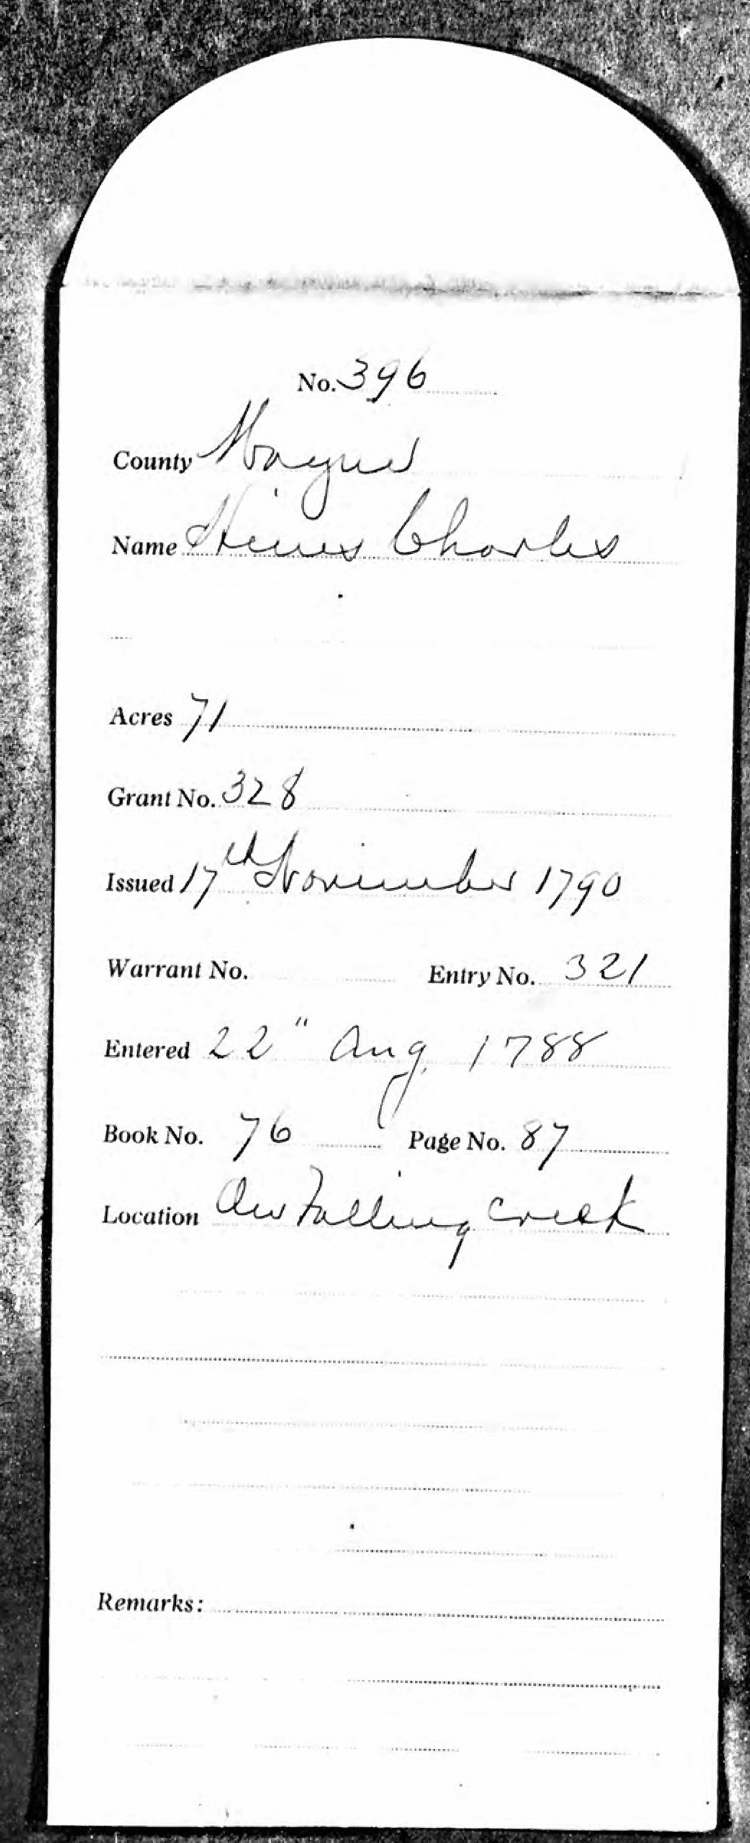 No. 396
County Wayne
Name Hines Charles
Acres 71
Grant No. 328
Issued 17th November 1790
Warrant No. Entry No. 321
Entered 22" Aug. 1788
Book No. 76 Page No. 87
Location On Falling Creek
Remarks: